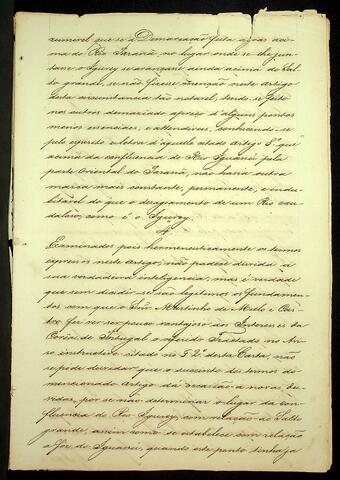 sumivel que se a Demarcação feita agoar aci-
ma do Rio Paraná, no lugar onde se lhe jun-
tane o Igurey se avançase ainda acima do Sal-
to grande, se não fizesse menção neste Artigo
desta circunstancia tão notavel, tendo se feito
nos outros demarcado apreço d'alguns pontos
menos essenciaes, e attendiveis, conhecendo-se
pelo espirito e letra d'aquelle citado Artigo 5º que
acima da confluencia do Rio Iguassú pela
parte Oriental do Paraná, não havia outra
marca mais constante, permanente, e indu-
bitavel do que o desaguamento de um Rio cau-
daloso, como é o Igurey.
4
Examinados pois hermeneuticamente os termos
expressos neste Artigo, não padece duvida a
sua verdadeira intelligencia, mas é verdade
que sem são legitimos os fundamen-
tos com que o Snr Martinho de Mello e Cas-
tro fez ver ser pouco vantajoso aos Interesses da
Corôa de Portugal o referido Tractado no Avi-
so instructivo citado no § 2º desta Carta, não
se póde duvidar que o succinto dos termos do
mencionado Artigo dá occasião a novas du-
vidas, por se não determinar o lugar da con-
fluencia do Rio Igurey, com relação ao Salto
grande, assim como se estabelece com relação
a foz do Iguassú, quando este ponto tinha ja